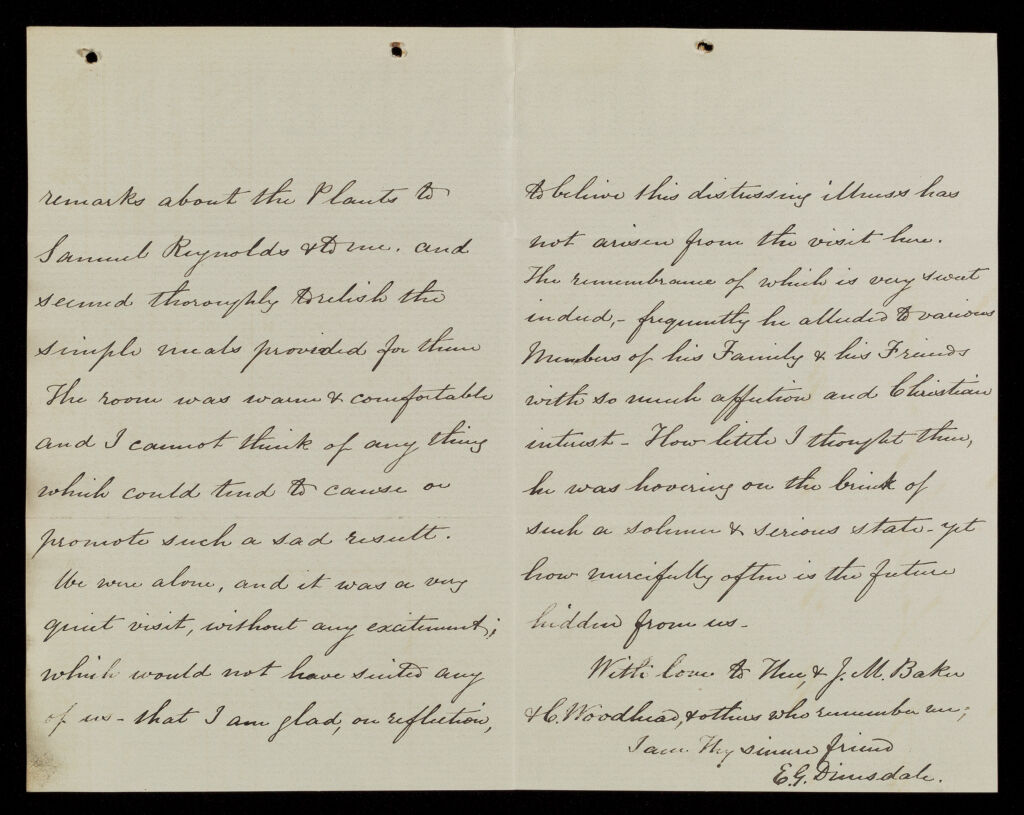 remarks about the Plants to
Samuel Reynolds & to me. and
seemed thoroughly to relish the
simple meals provided for them
The room was warm & comfortable
and I cannot think of any thing
which could tend to cause or
promote such a sad result.
We were alone, and it was a very
quiet visit, without any excitement;
which would not have suited any
of us - that I am glad, on reflection,
to believe this distressing illness has
not arisen from the visit here.
The remembrance of which is very sweet
indeed, - frequently he alluded to various
Members of his Family & his Friends
with so much affection and Christian
interest - How little I thought then,
he was hovering on the brink of
such a solemn & serious state - yet
how mercifully often is the future
hidden from us -
With love to Thee, & J. M. Baker
& C. Woodhead, & others who remember me;
I am Thy sincere friend
E. G. Dimsdale.